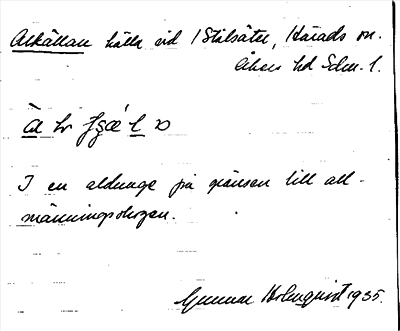 Alkällan källa vid Stålsäter, Härads sn.
Åkers hd Sdm. l.
I en aldunge på gränsen till all-
männingsskogen.
Gunnar Holmquist 1935.